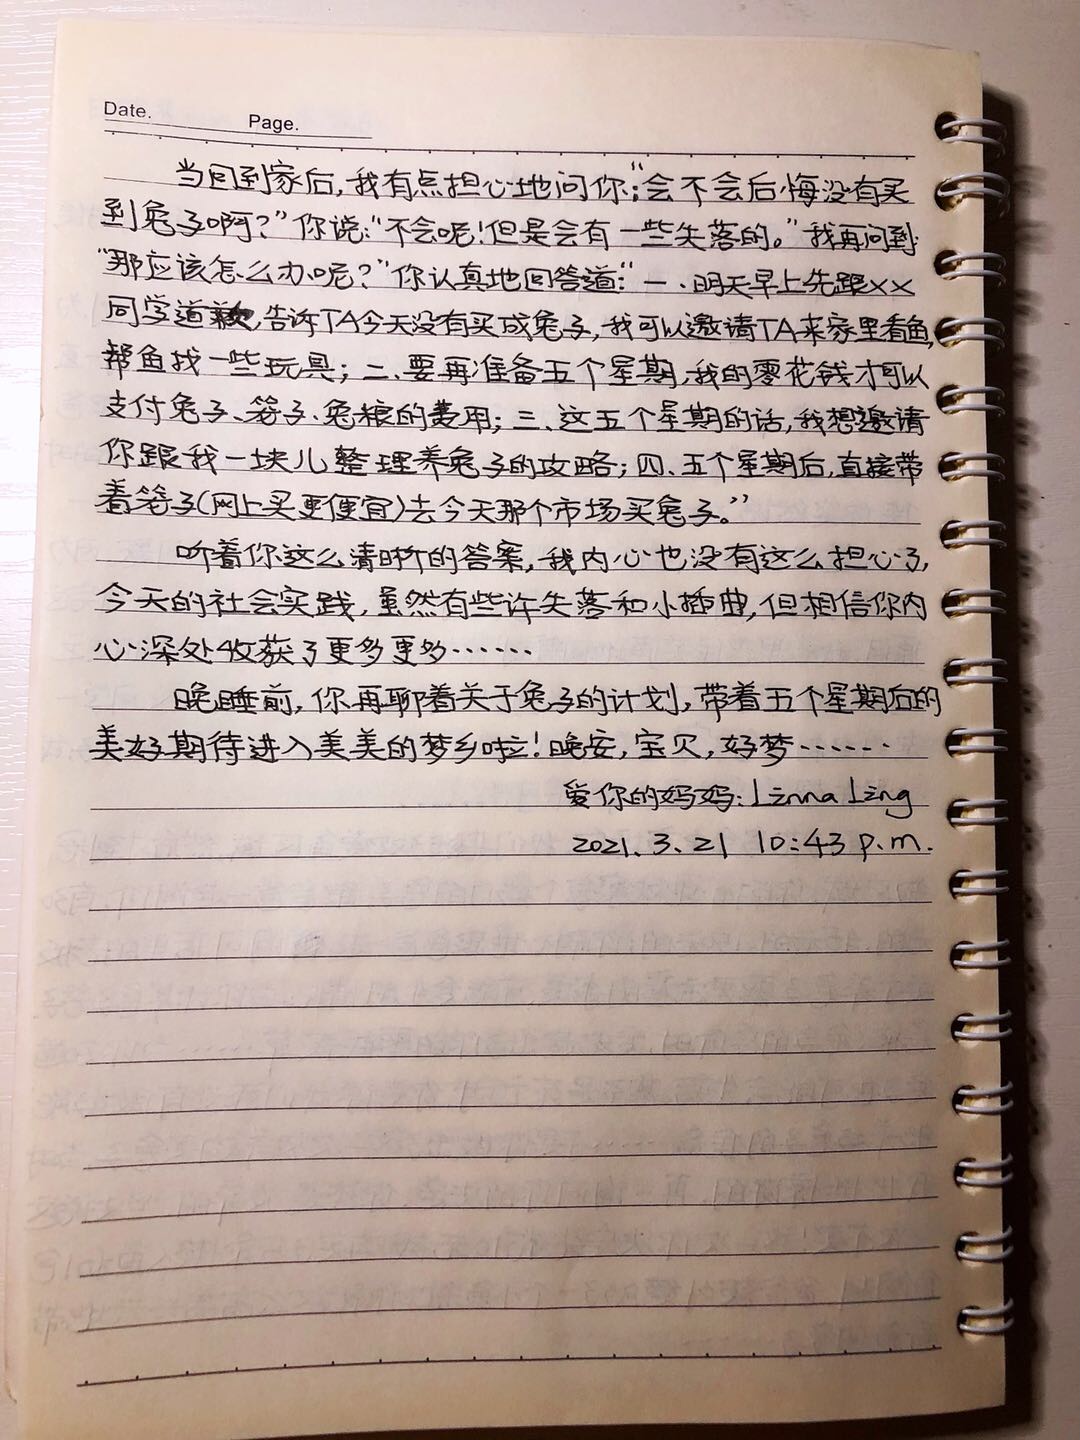 Date.
Page.
当回到家后,我有点担心地问你:“会不会后悔没有买
到兔子啊?”你说:“不会呢!但是会有一些失落的。”我再问到:
“那应该怎么办呢?”你认真地回答道:“一、明天早上先跟××
同学道歉,告诉TA今天没有买成兔子,我可以邀请TA来家里看鱼,
帮鱼找一些玩具;二、要再准备五个星期,我的零花钱才可以
支付兔子、笼子、兔粮的费用;三、这五个星期的话,我想邀请
你跟我一块儿整理养兔子的攻略;四、五个星期后,直接带
着笼子(网上买更便宜)去今天那个市场买兔子。”
听着你这么清晰的答案,我内心也没有这么担心了,
今天的社会实践,虽然有些许失落和小插曲,但相信你内
心深处收获了更多更多……
晚睡前,你再聊着关于兔子的计划,带着五个星期后的
美好期待进入美美的梦乡啦!晚安,宝贝,好梦……
爱你的妈妈:Linna Ling
2021.3.21 10:43 p.m.